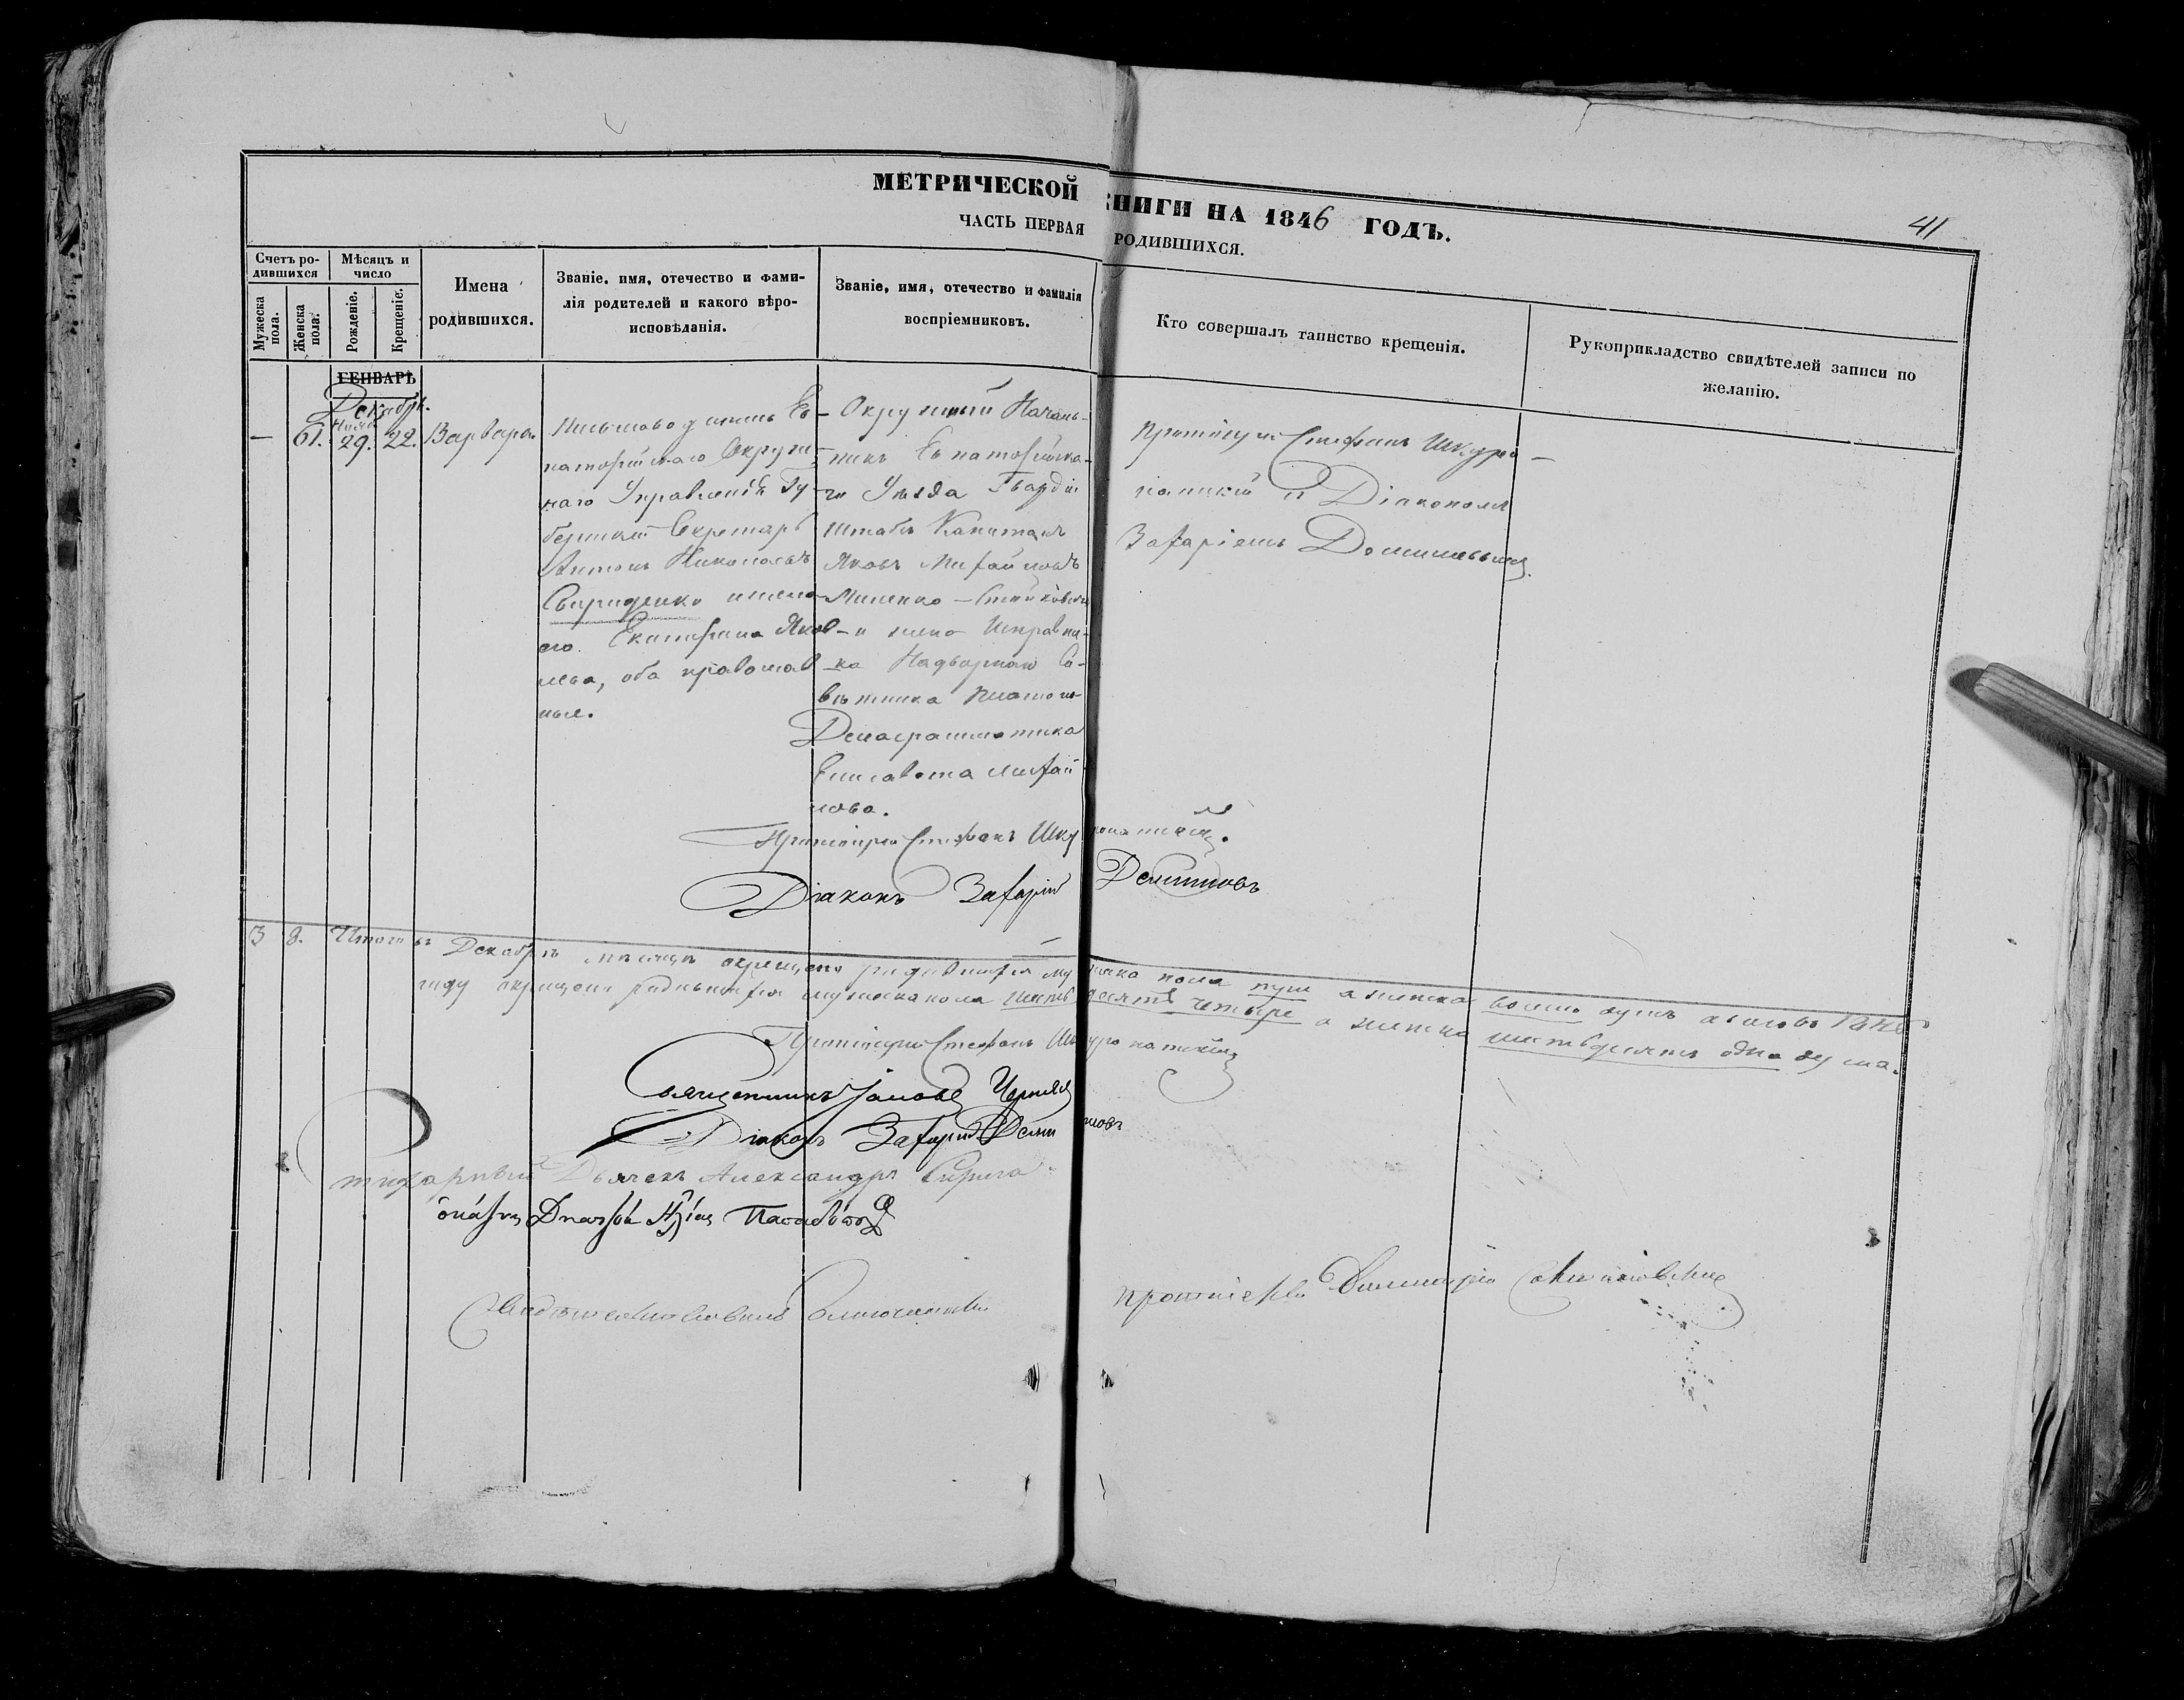 МЕТРИЧЕСКОЙ КНИГИ НА 1846 ГОДЪ.
41
ЧАСТЬ ПЕРВАЯ РОДИВШИХСЯ.
Счетъ ро-
дившихся
Мужеска пола.
Женска пола.
Мѣсяцъ и
число
Рожденіе.
Крещеніе.
Имена
родившихся.
Званіе, имя, отечество и фами-
лія родителей и какого вѣро-
исповѣданія.
Званіе, имя, отечество и фамилія
воспріемниковъ.
Кто совершалъ таинство крещенія.
Рукоприкладство свидѣтелей записи по
желанію.
ГЕНВАРЬ
Декабрь.
Нояб
— 61. 29. 22. Варвара
Письмоводитель Ев-
паторійскаго Окруж-
наго Управленія Гу-
бернскій Секретарь
Антонъ Николаевъ
Свириденко и жена
его Екатерина Яков-
лева, оба православ-
ные.
Окружный Началь-
никъ Евпаторійска-
го Уѣзда Гвардіи
Штабъ Капитанъ
Яковъ Михайловъ
и жена Исправни-
ка Надворнаго Со-
вѣтника Платона
Елисавета Михай-
лова.
Протоіерей Стефанъ Шкуро-
патскій и Діакономъ
Захаріемъ
Протоіерей Стефанъ Шкуропатскій.
Діаконъ Захарій
3 8. Итого въ Декабрѣ мѣсяцѣ окрещено родившихся мужеска пола а женска восемь душъ а всего въ 1846
году окрещено родившихся мужеска пола шестьдесятъ четыре а женска шестьдесятъ одна душа.
Протоіерей Стефанъ Шкуропатскій
Священникъ Іаковъ
Діаконъ Захарій
Дьячекъ Александръ
Протоіерей Димитрій